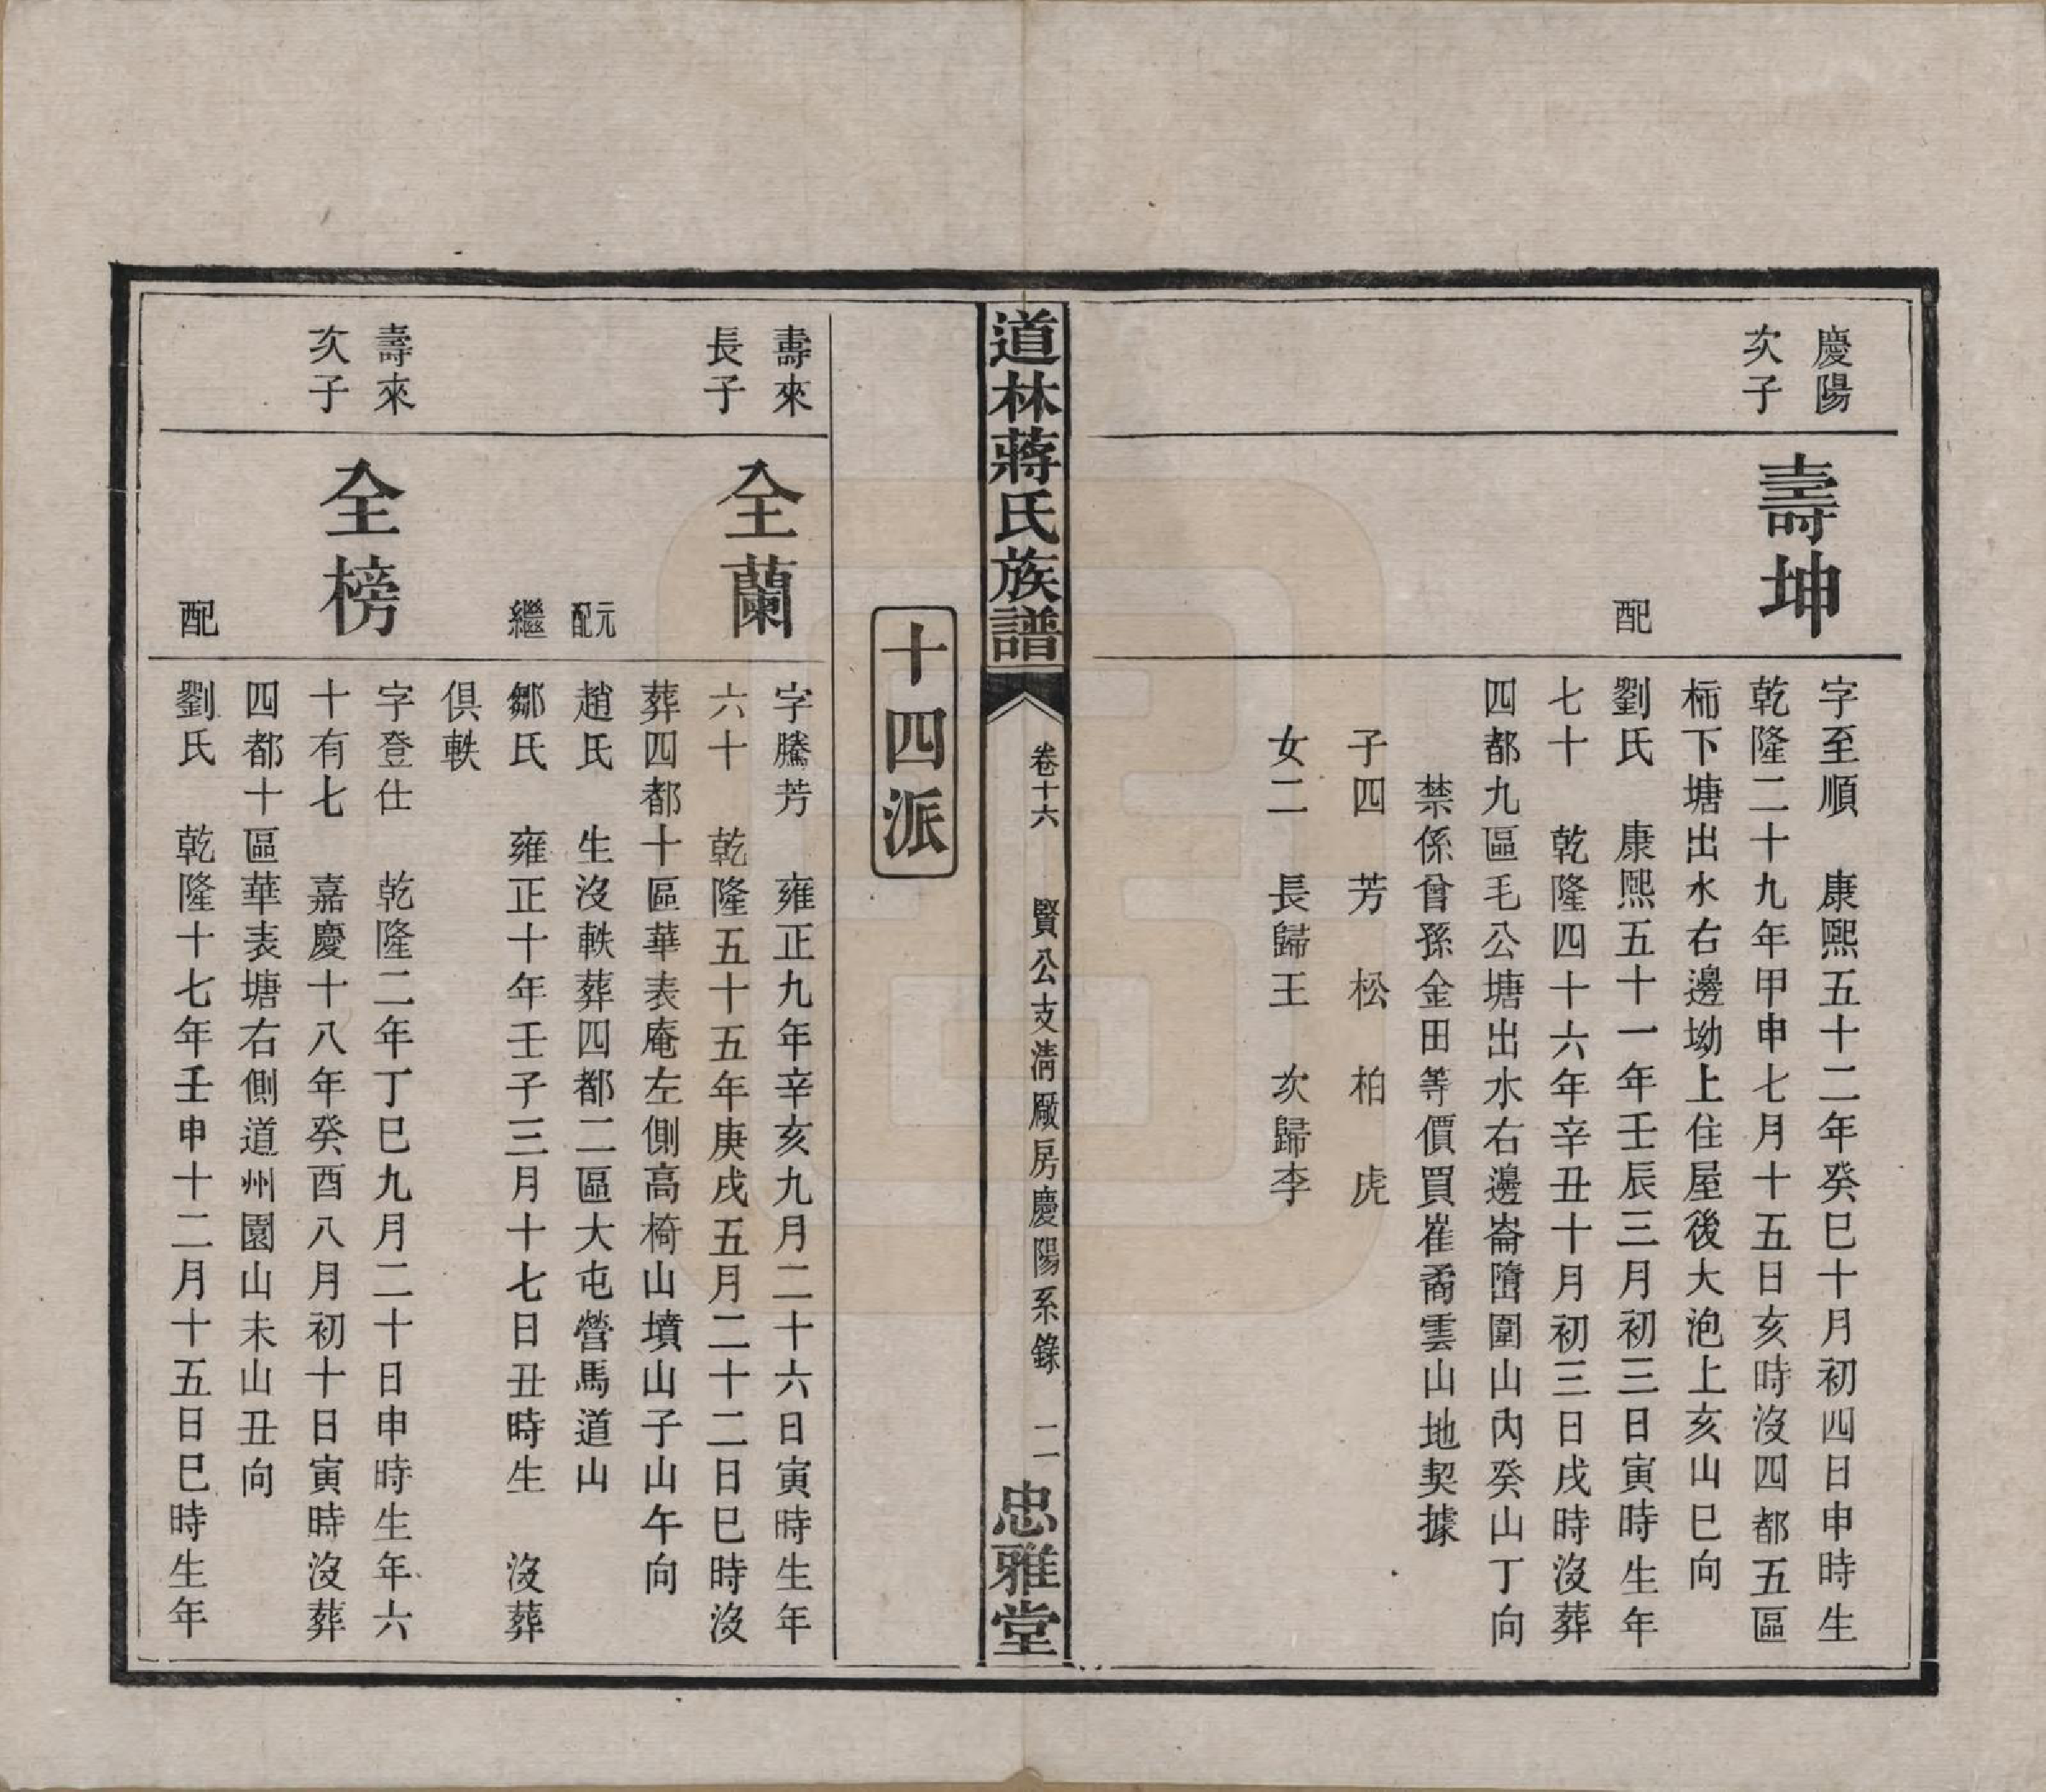 慶陽
次子
壽坤
字至順　康熙五十二年癸巳十月初四日申時生
乾隆二十九年甲申七月十五日亥時沒四都五區
柿下塘出水右邊坳上住屋後大泡上亥山巳向
配
劉氏　康熙五十一年壬辰三月初三日寅時生年
七十　乾隆四十六年辛丑十月初三日戌時沒葬
四都九區毛公塘出水右邊崙隋圍山內癸山丁向
禁係曾孫金田等價買崔矞雲山地契據
子四　芳　松　柏　虎
女二　長歸王　次歸李
道林蔣氏族譜
卷十六　賢公支清廠房慶陽系錄　二
忠雅堂
十四派
壽來
長子
全蘭
字騰芳　雍正九年辛亥九月二十六日寅時生年
六十　乾隆五十五年庚戌五月二十二日巳時沒
葬四都十區華表庵左側高椅山墳山子山午向
元配
趙氏　生沒軼葬四都二區大屯營馬道山
繼
鄒氏　雍正十年壬子三月十七日丑時生　沒葬
俱軼
壽來
次子
全榜
字登仕　乾隆二年丁巳九月二十日申時生年六
十有七　嘉慶十八年癸酉八月初十日寅時沒葬
四都十區華表塘右側道州園山未山丑向
配
劉氏　乾隆十七年壬申十二月十五日巳時生年